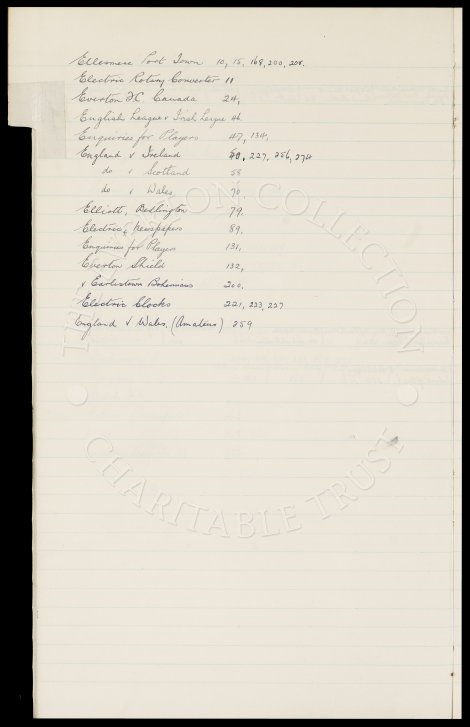 Ellesmere Port Town 10, 15, 168, 200, 208.
Electric Rotary Converter 11
Everton FC Canada 24,
English League v Irish League 46
Enquiries for Players 47, 134,
England v Ireland 227, 256, 274
do v Scotland 58
do v Wales 70
Elliott, Bedlington 79.
Electric Newspapers 89.
Enquiries for Players 131,
Everton Shield 132,
v Earlestown Bohemians 200.
Electric Clocks 221, 223, 227
England v Wales. (Amateurs) 259
COLLECTION
CHARITABLE TRUST